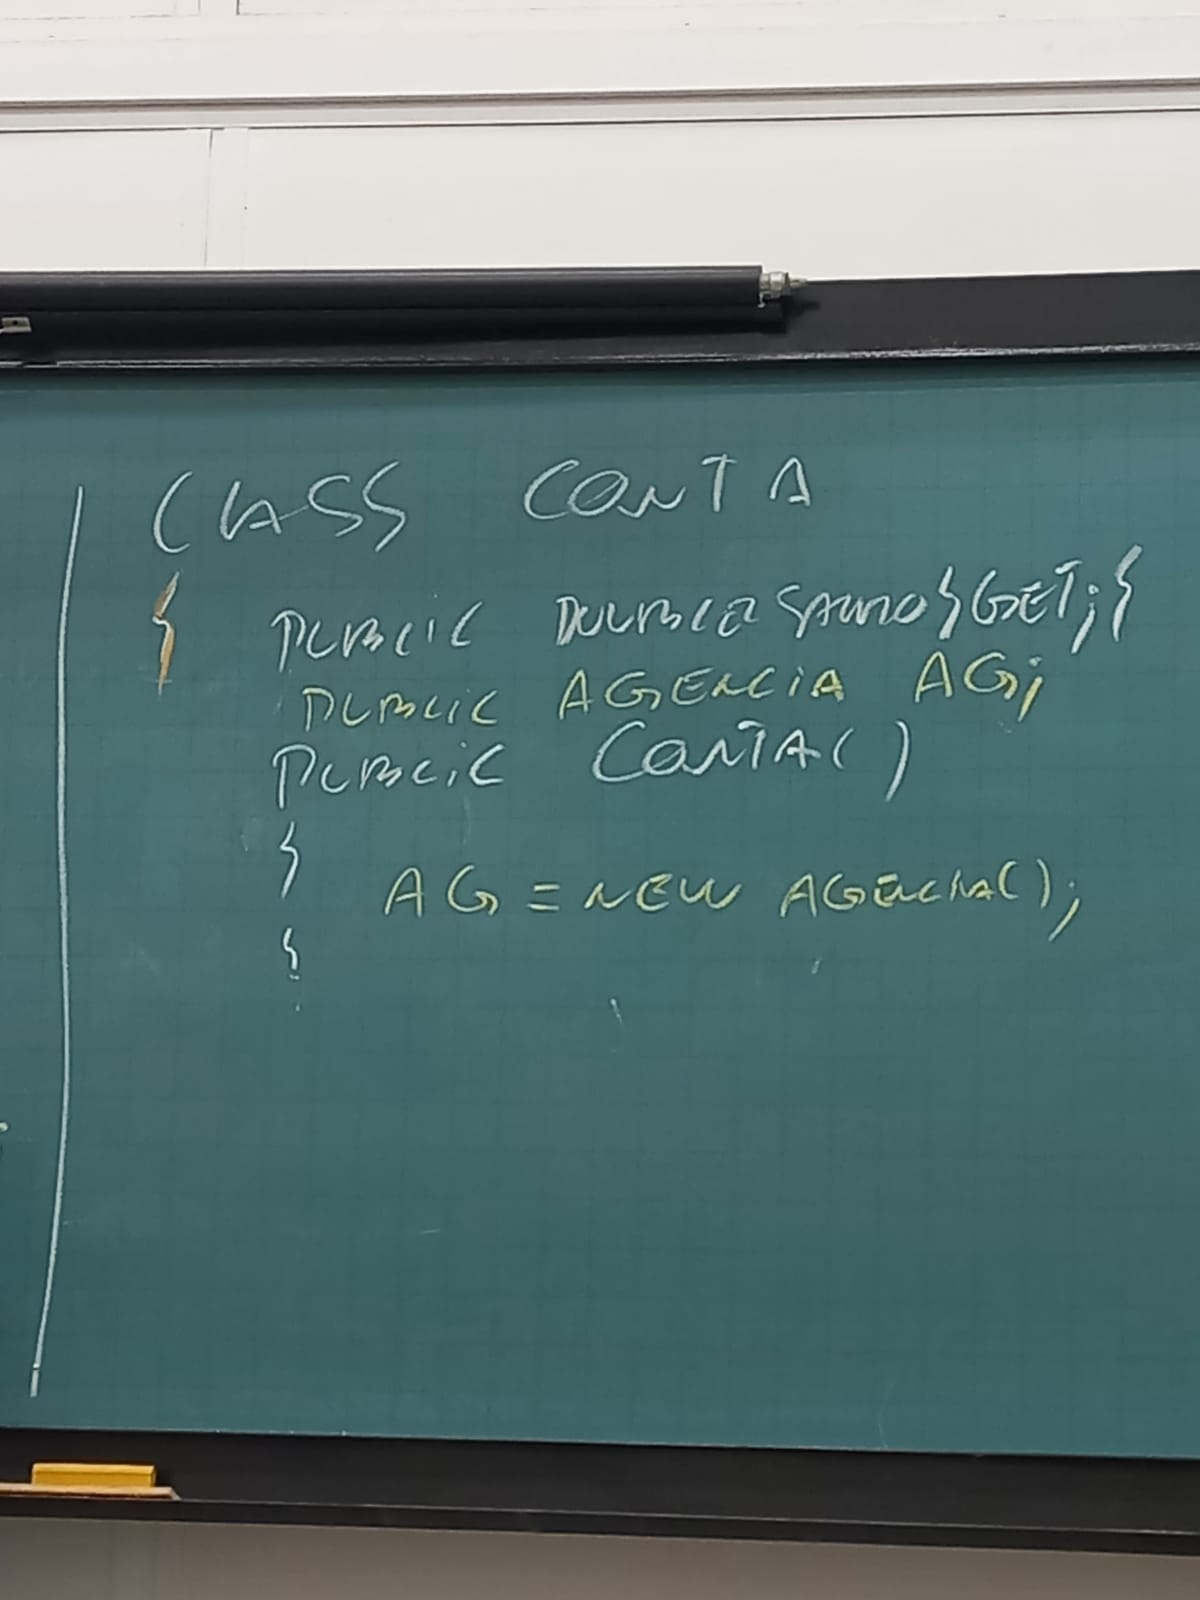 CLASS CONTA
{
PUBLIC DOUBLE SALDO {GET;}
PUBLIC AGENCIA AG;
PUBLIC CONTA()
{
AG = NEW AGENCIA();
}